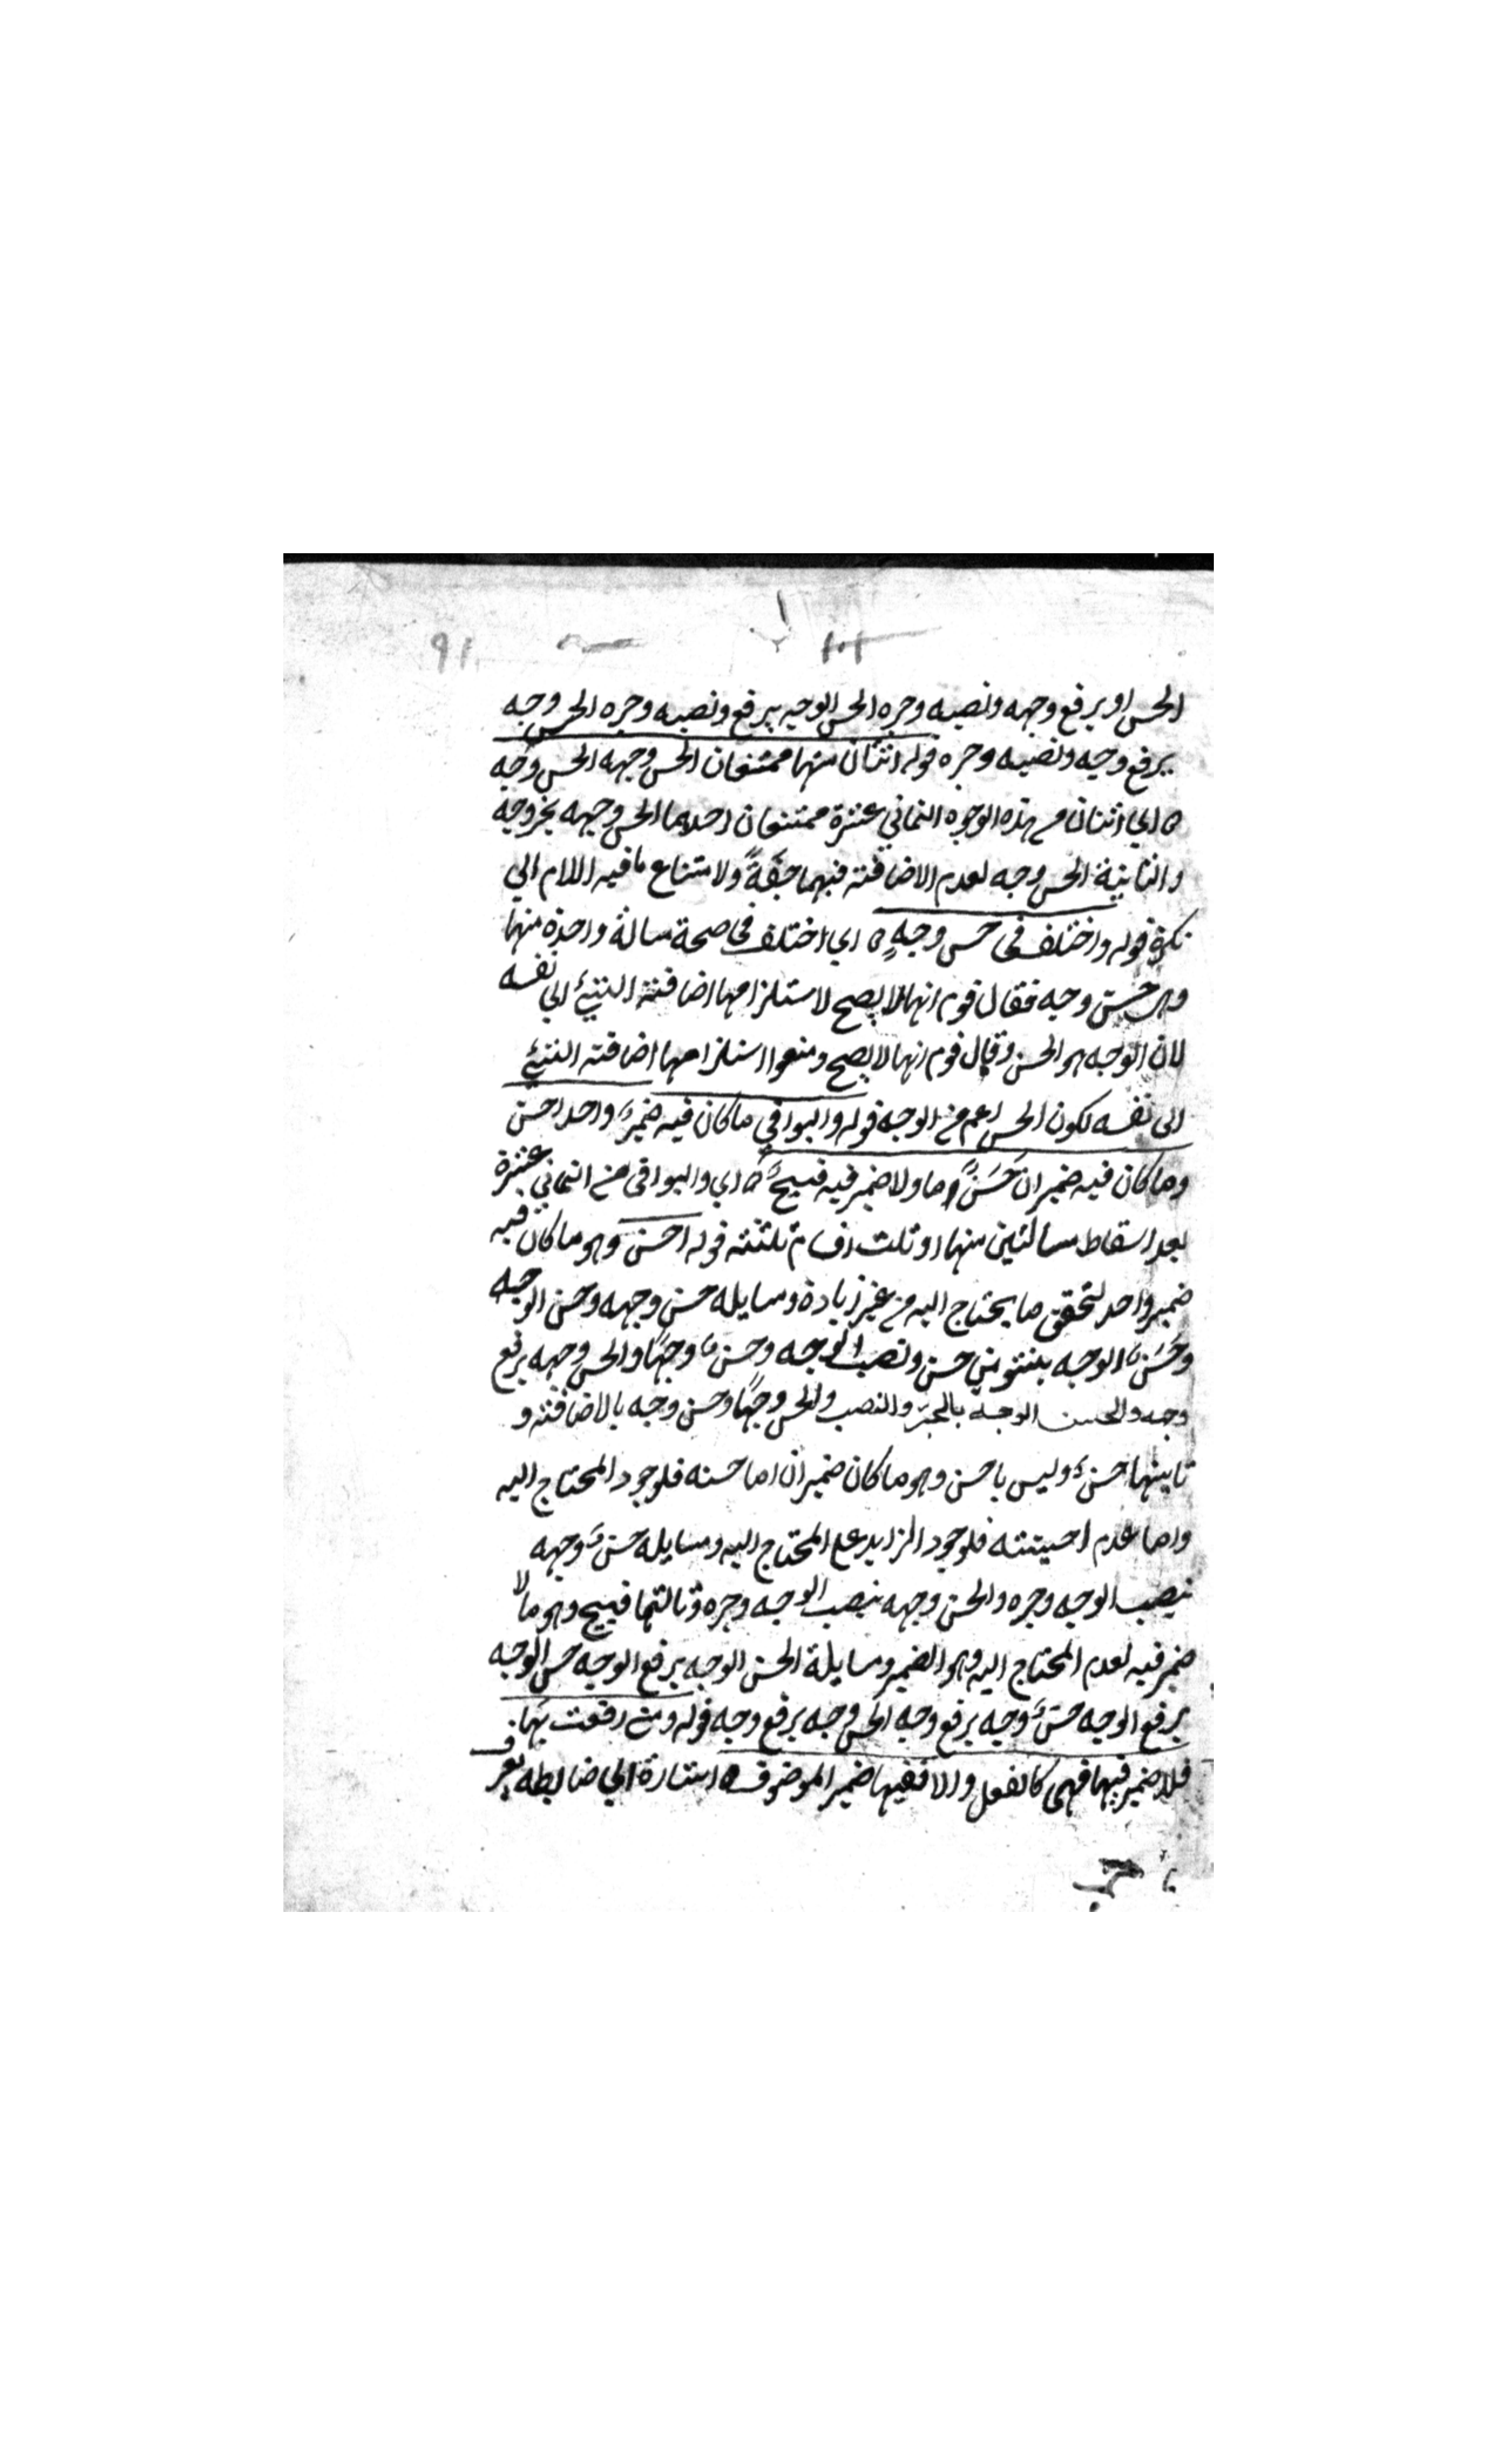 ٩١ ١٠١
الحسن او يرفع وجهه ونصبه وجره الحسن الوجه يرفع ونصبه وجره الحسن وجه
يرفع وجه ونصبه وجره قوله اثنان منها ممتنعان الحسن وجهه الحسن وجه
اي اثنان من هذه الوجوه الثماني عشرة ممتنعان احديهما الحسن وجهه بجر وجه
والثانية الحسن وجه لعدم الاضافة فيهما خفة ولامتناع ما فيه اللام الي
نكرة قوله واختلف في حسن وجهه اي اختلف في صحة مسالة واحدة منها
وهي حسن وجه فقال قوم انها لا يصح لاستلزامها اضافة الشيئ الي نفسه
لان الوجه هو الحسن وقال قوم انها لا يصح ومنعوا استلزامها اضافة الشيئ
الى نفسه لكون الحسن اعم من الوجه قوله والبواقي ما كان فيه ضمير واحد احسن
وما كان فيه ضميران حسن وما ولا ضمير فيه قبيح اي والبواقي من الثماني عشرة
بعد اسقاط مسالتين منها او ثلث اقسام ثلثة قوله احسن وهو ما كان فيه
ضمير واحد لتحقق ما يحتاج اليه من غير زيادة ومسايله حسن وجهه وحسن الوجه
وحسن الوجه بتنوين حسن ونصب الوجه وحسن وجها والحسن وجهه برفع
وجه والحسن الوجه بالجر والنصب والحسن وجها وحسن وجه بالاضافة و
ثانيتها حسن وليس باحسن وهو ما كان ضميران اما حسنه فلوجود المحتاج اليه
واما عدم احسنيته فلوجود الزايد على المحتاج اليه ومسايله حسن وجهه
بنصب الوجه وجره والحسن وجهه بنصب الوجه وجره وثالثتها قبيح وهو ما لا
ضمير فيه لعدم المحتاج اليه وهو الضمير ومسايلة الحسن الوجه برفع الوجه حسن الوجه
برفع الوجه حسن وجه برفع وجه الحسن وجه برفع وجه قوله ومتى رفعت بها
فلا ضمير فيها فهي كالفعل والا ففيها ضمير الموصوف اشارة الي ضابطه يعر